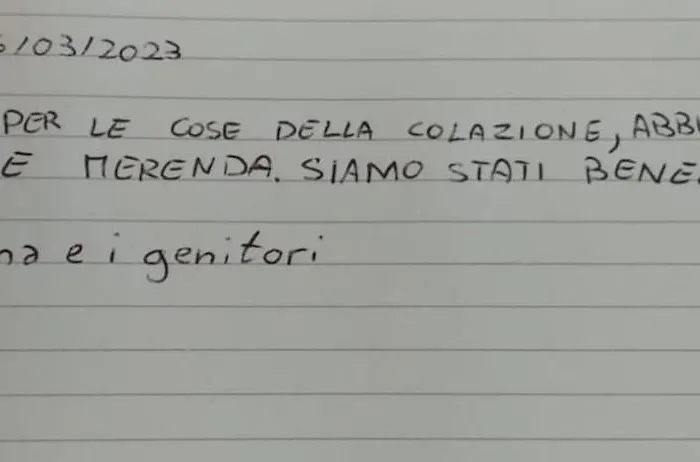 6/03/2023
PER LE COSE DELLA COLAZIONE, ABB
E MERENDA. SIAMO STATI BENE
na e i genitori